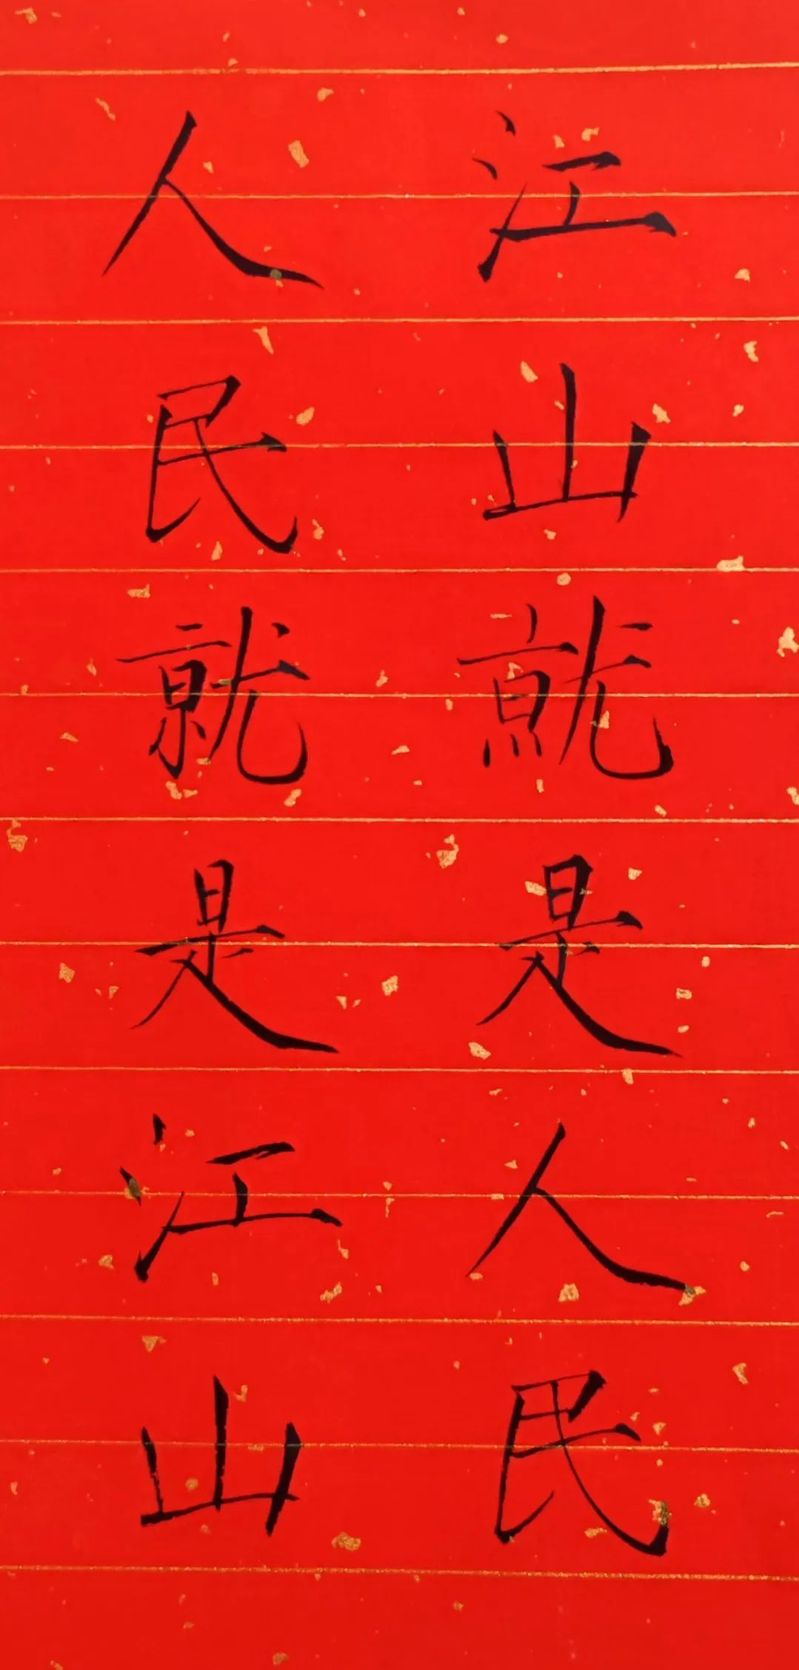 江山就是人民
人民就是江山